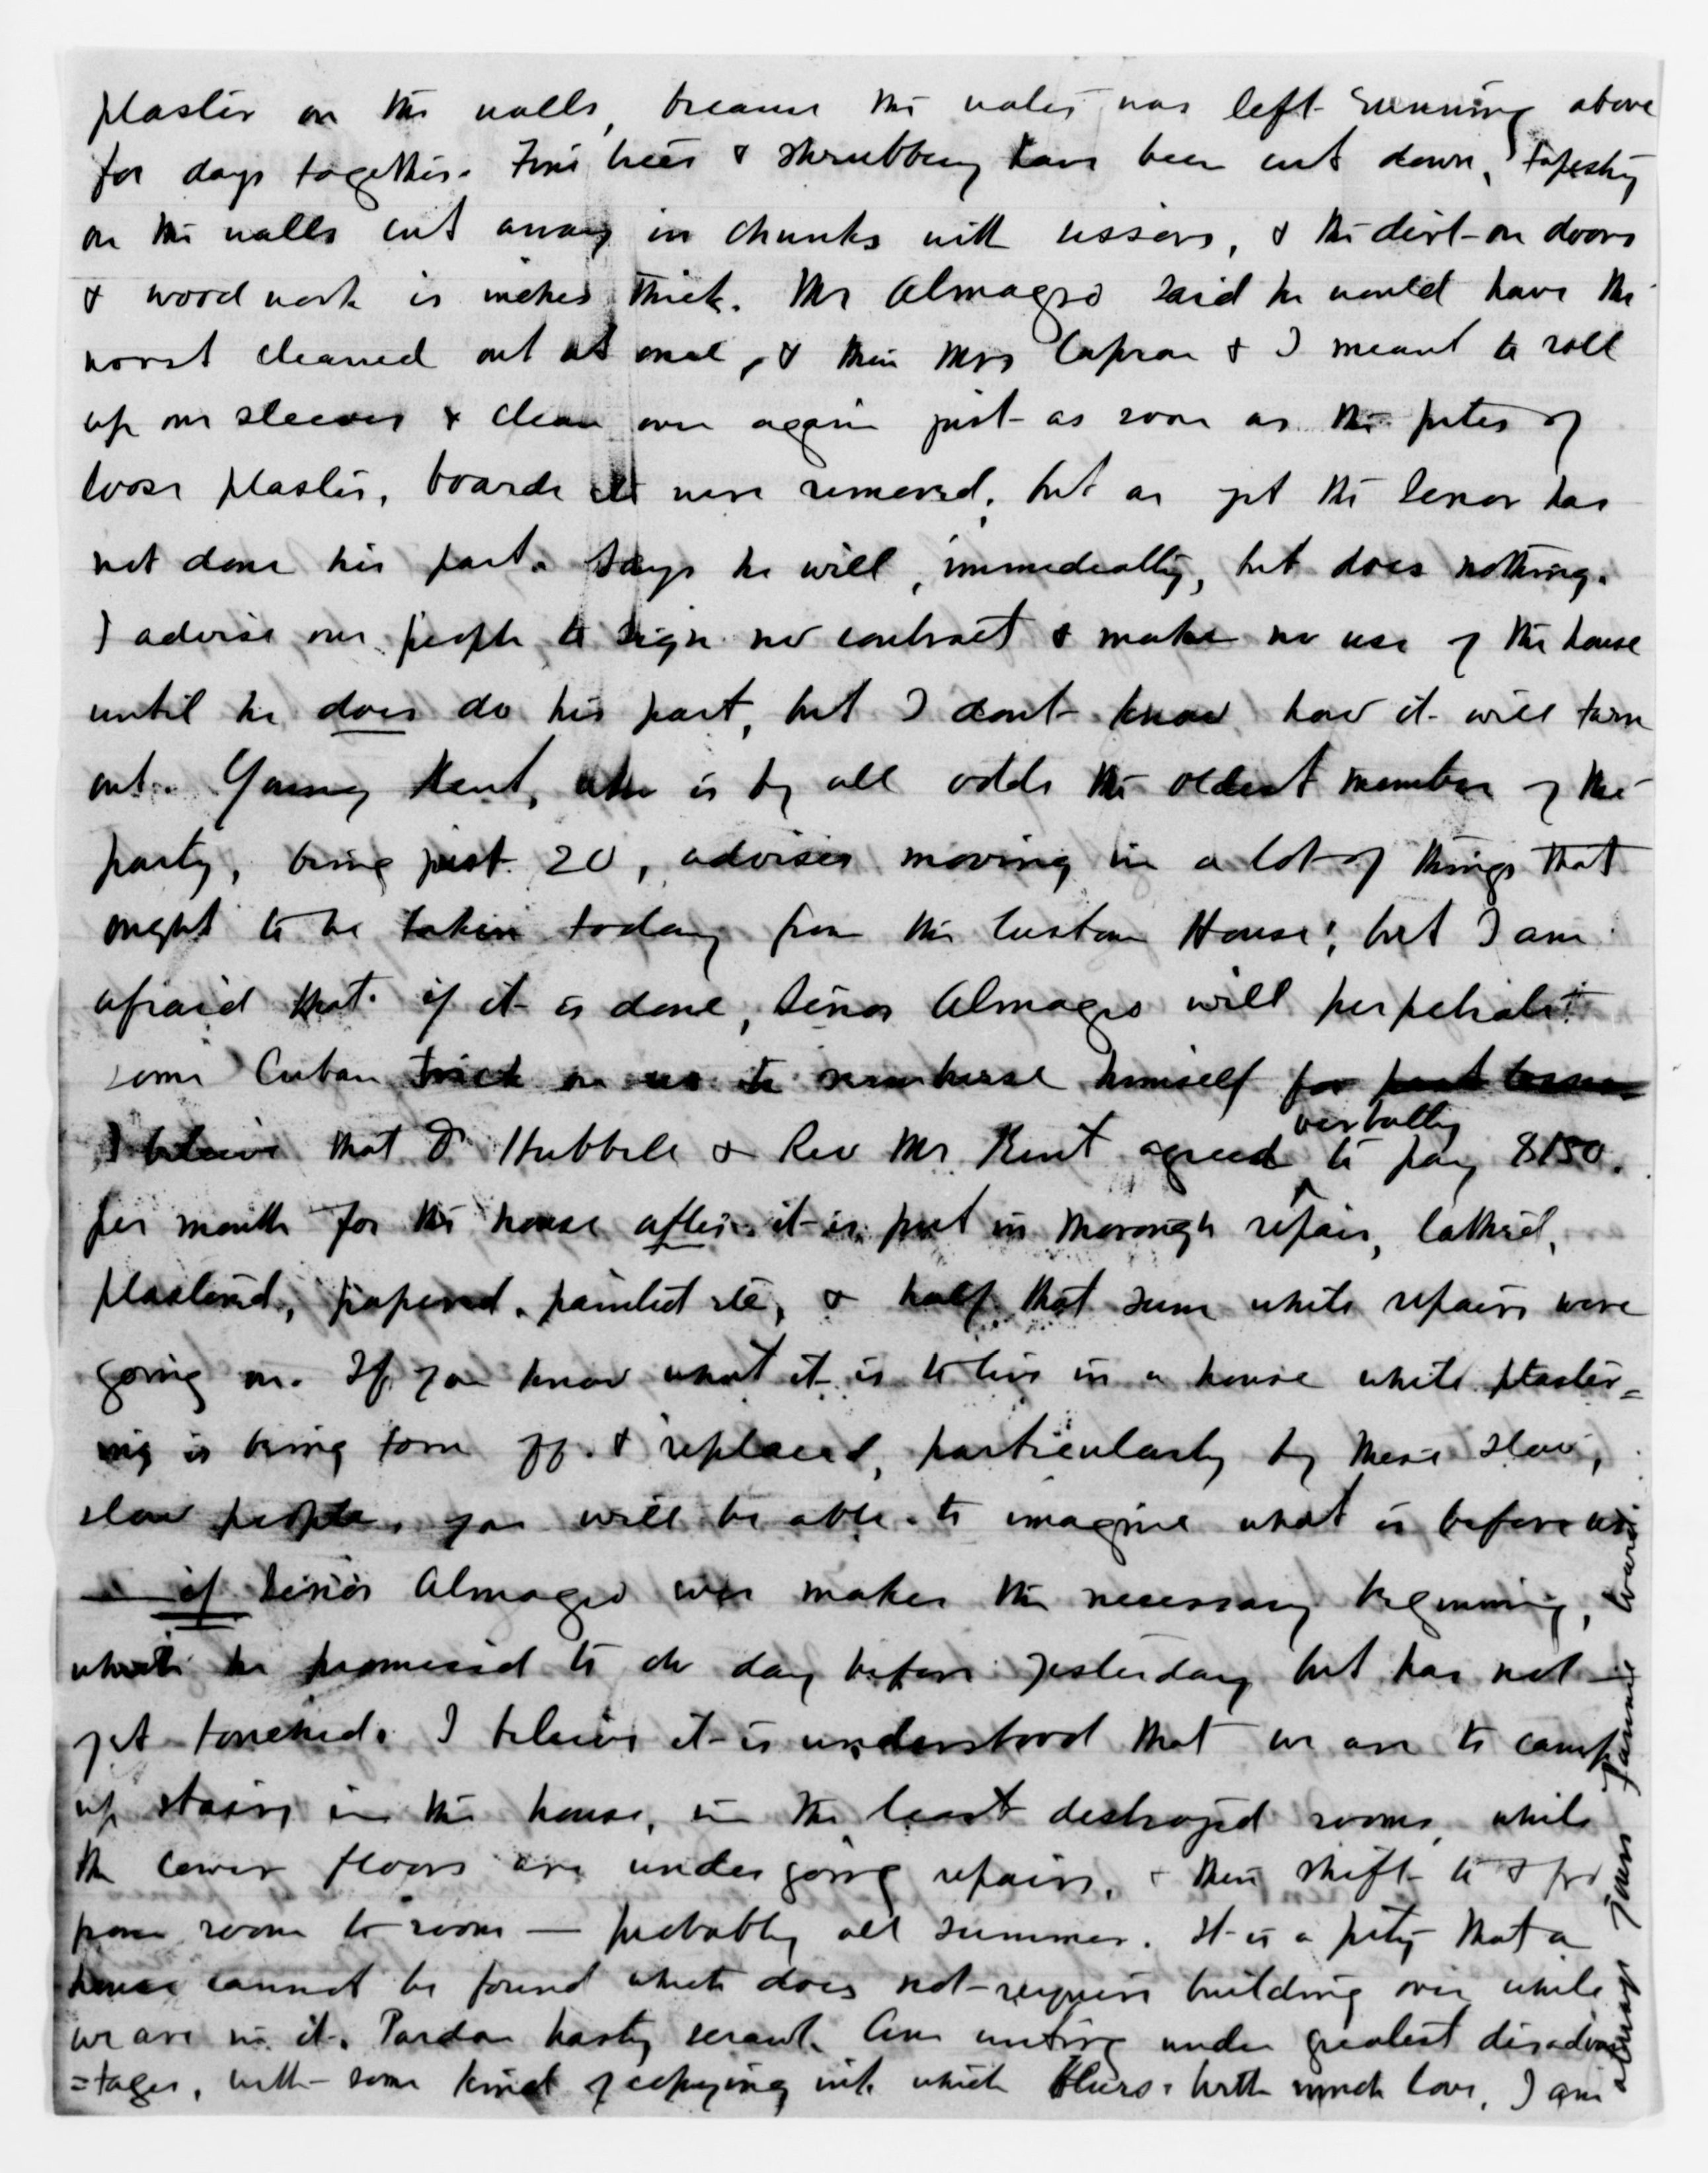 plaster on the walls, because the water was left running above
for days together. Fine trees & shrubbery have been cut down, tapestry
on the walls cut away in chunks with scissors, & the dirt on doors
& wood work is inches thick. Mr Almagro said he would have the
worst cleaned out at once, & then Mrs Capron & I meant to roll
up our sleeves & clean over again just as soon as the piles of
loose plaster, boards etc were removed; but as yet the Senor has
not done his part. Says he will, immediately, but does nothing.
I advise our people to sign no contract & make no use of the house
until he does do his part, but I dont know how it will turn
out. Young Kent, who is by all odds the oldest member of the
party, being just 20, advises moving in a lot of things that
ought to be taken today from the Custom House; but I am
afraid that if it is done, Senor Almagro will perpetrate
some Cuban trick on us to reimburse himself for past losses
I believe that Dr Hubbell & Rev Mr. Kent agreed verbally to pay $150.
per month for the house after it is put in thorough repair, lathed,
plastered, papered, painted etc, & half that sum while repairs were
going on. If you know what it is to live in a house while plaster=
ing is being torn off & replaced, particularly by these slow,
slow people, you will be able to imagine what is before us
— if Senor Almagro ever makes the necessary beginning,
which he promised to do day before yesterday but has not
yet touched. I believe it is understood that we are to camp
up stairs in the house, in the least destroyed rooms, while
the lower floors are undergoing repairs, & then shift to & fro
from room to room — probably all summer. It is a pity that a
house cannot be found which does not require building over while
we are in it. Pardon hasty scrawl. Am writing under greatest disadvan
=tages, with some kind of copying ink which blurs. With much love, I am
always yours Fannie Ward